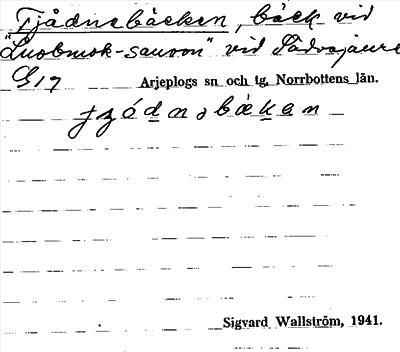 Tjådnebäcken, bäck vid
"Luobmok-sauon" vid Sädvajaure
G17 Arjeplogs sn och tg, Norrbottens län.
Sigvard Wallström, 1941.